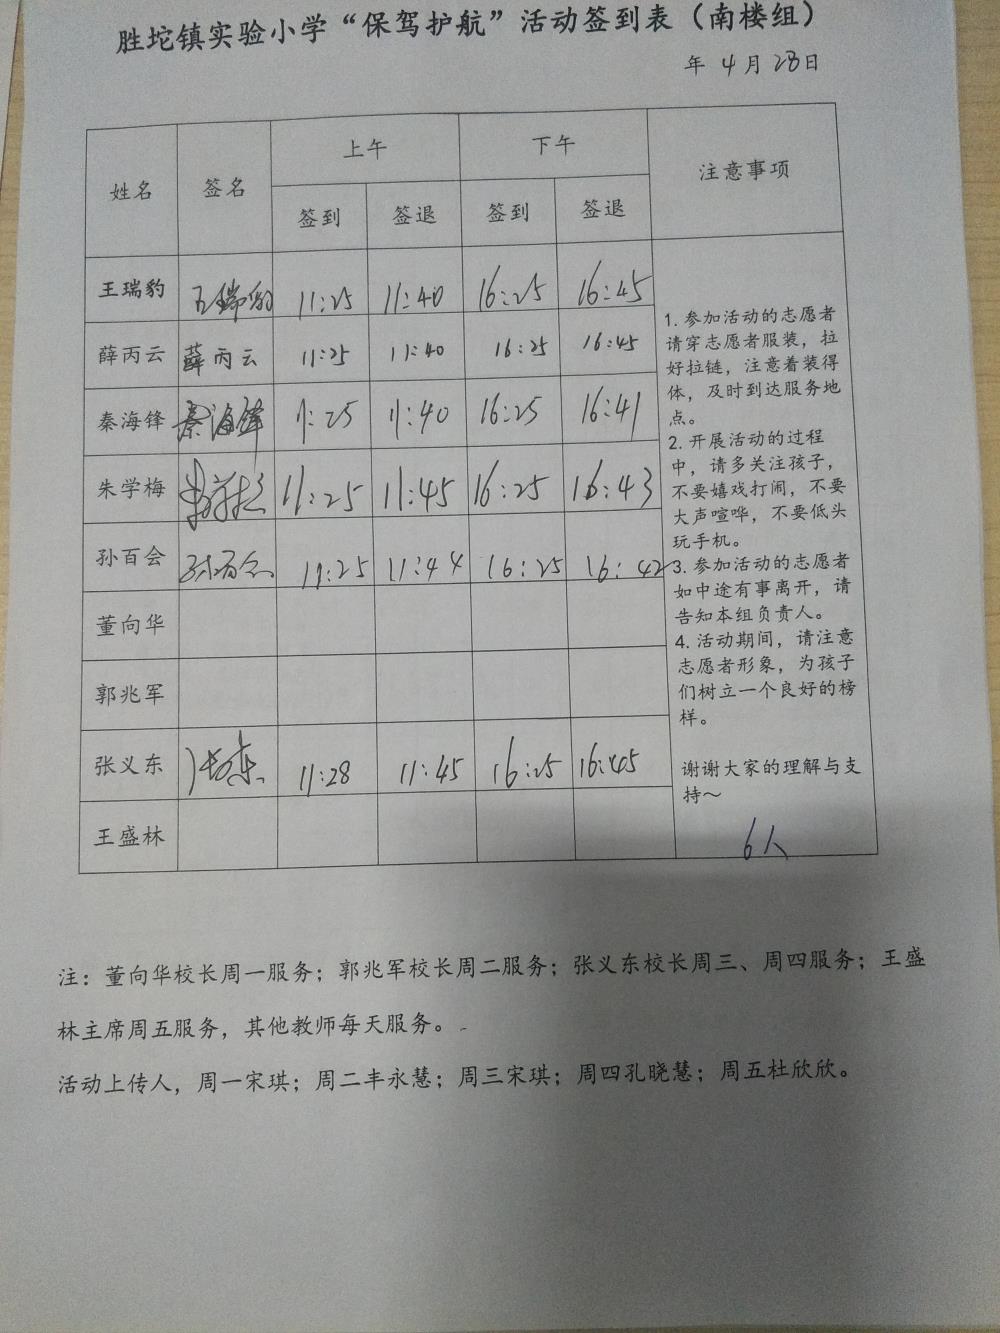 胜坨镇实验小学“保驾护航”活动签到表（南楼组）
年 4月 28日
姓名 签名 上午 下午 注意事项
签到 签退 签到 签退
王瑞豹 王瑞豹 11:25 11:40 16:25 16:45
薛丙云 薛丙云 11:25 11:40 16:25 16:45
秦海锋 秦海锋 11:25 11:40 16:25 16:41
朱学梅 朱学梅 11:25 11:45 16:25 16:43
孙百会 孙百会 11:25 11:44 16:25 16:42
董向华
郭兆军
张义东 张义东 11:28 11:45 16:25 16:45
王盛林
1. 参加活动的志愿者
请穿志愿者服装，拉
好拉链，注意着装得
体，及时到达服务地
点。
2. 开展活动的过程
中，请多关注孩子，
不要嬉戏打闹，不要
大声喧哗，不要低头
玩手机。
3. 参加活动的志愿者
如中途有事离开，请
告知本组负责人。
4. 活动期间，请注意
志愿者形象，为孩子
们树立一个良好的榜
样。
谢谢大家的理解与支
持～
6人
注：董向华校长周一服务；郭兆军校长周二服务；张义东校长周三、周四服务；王盛
林主席周五服务，其他教师每天服务。
活动上传人，周一宋琪；周二丰永慧；周三宋琪；周四孔晓慧；周五杜欣欣。